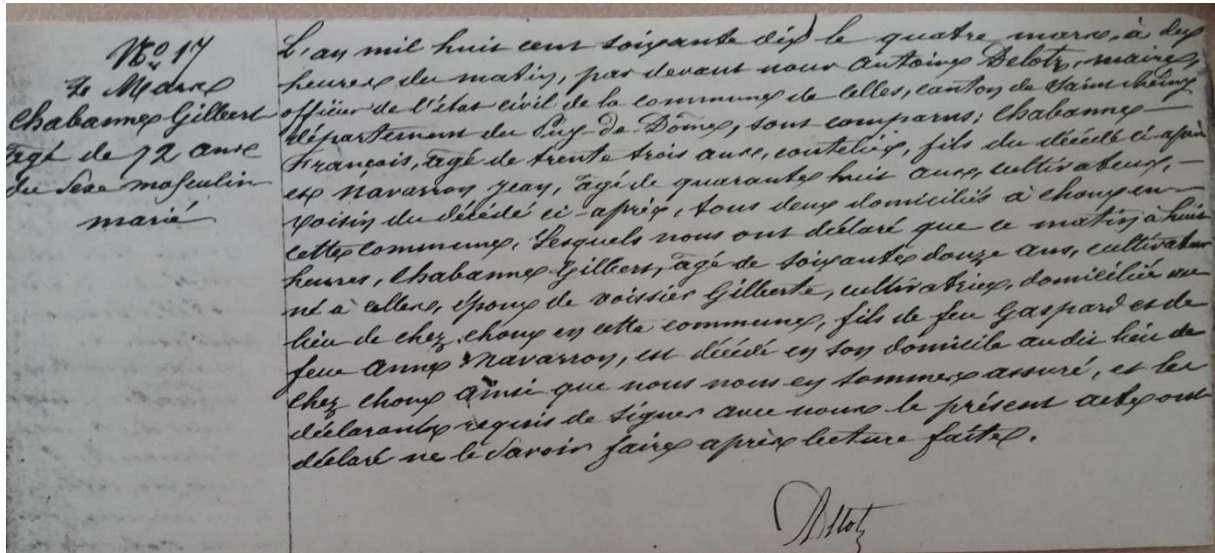 No 17
4 Mars
Chabannes Gilbert
agé de 72 ans
du sexe masculin
marié
L'an mil huit cent soixante dix le quatre mars, à dix
heures du matin, par devant nous Antoine Delotz, maire,
officier de l'état civil de la commune de Celles, canton de Saint Rémy
département du Puy-de-Dôme, sont comparus; Chabannes
François, agé de trente trois ans, coutelier, fils du décédé ci-après
et Navarron Jean, agé de quarante huit ans, cultivateur,
voisin du décédé ci-après, tous deux domiciliés à choux en
cette commune, Lesquels nous ont déclaré que ce matin à huit
heures, Chabannes Gilbert, agé de soixante douze ans, cultivateur
né à Celles, époux de voissier Gilberte, cultivatrice, domiciliée au
lieu de chez choux en cette commune, fils de feu Gaspard et de
feue Anne Navarron, est décédé en son domicile audit lieu de
chez choux ainsi que nous nous en sommes assuré, et les
déclarants requis de signer avec nous le présent acte ont
déclaré ne le savoir faire après lecture faite.
Delotz